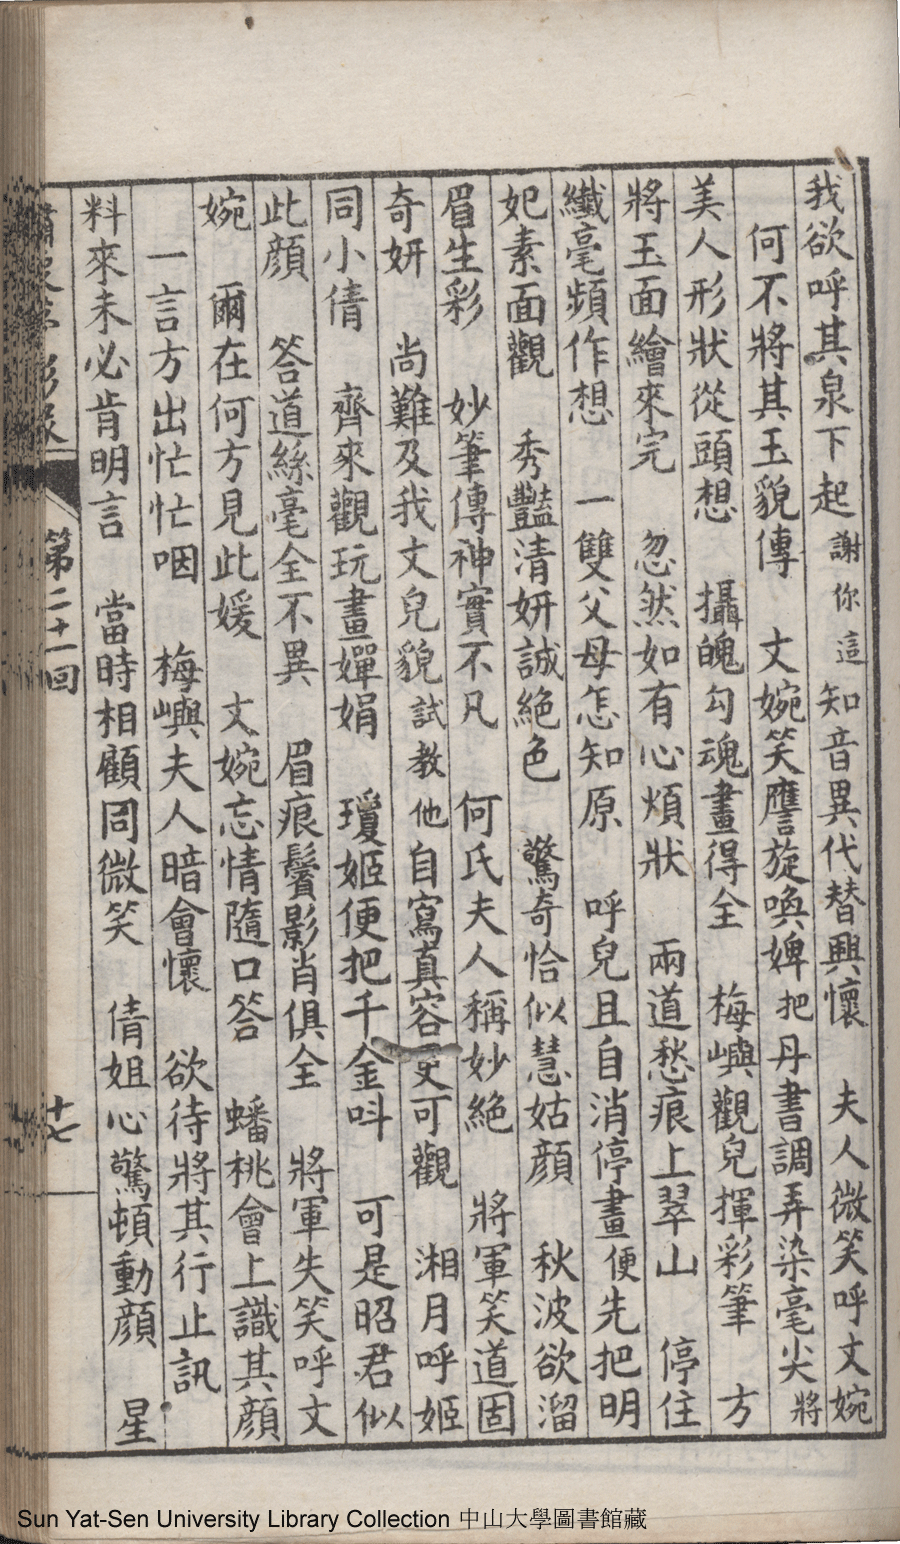 我欲呼其泉下起謝你這知音異代替興懷　夫人微笑呼文婉
何不將其玉貌傳　文婉笑譍旋喚婢把丹書調弄染毫尖將
美人形狀從頭想　攝魄勾魂畫得全　梅嶼觀兒揮彩筆　方
將玉面繪來完　忽然如有心煩狀　兩道愁痕上翠山　停住
纖毫頻作想　一雙父母怎知原　呼兒且自消停畫便先把明
妃素面觀　秀豔清妍誠絕色　驚奇恰似慧姑顏　秋波欲溜
眉生彩　妙筆傳神實不凡　何氏夫人稱妙絕　將軍笑道固
奇妍　尚難及我文兒貌試教他自寫真容更可觀　湘月呼姬
同小倩　齊來觀玩畫嬋娟　瓊姬便把千金呌　可是昭君似
此顏　答道絲毫全不異　眉痕鬢影肖俱全　將軍失笑呼文
婉　爾在何方見此媛　文婉忘情隨口答　蟠桃會上識其顏
一言方出忙忙咽　梅嶼夫人暗會懷　欲待將其行止訊
料來未必肯明言　當時相顧同微笑　倩姐心驚頓動顏　星
第二十一回
十七
Sun Yat-Sen University Library Collection 中山大學圖書館藏